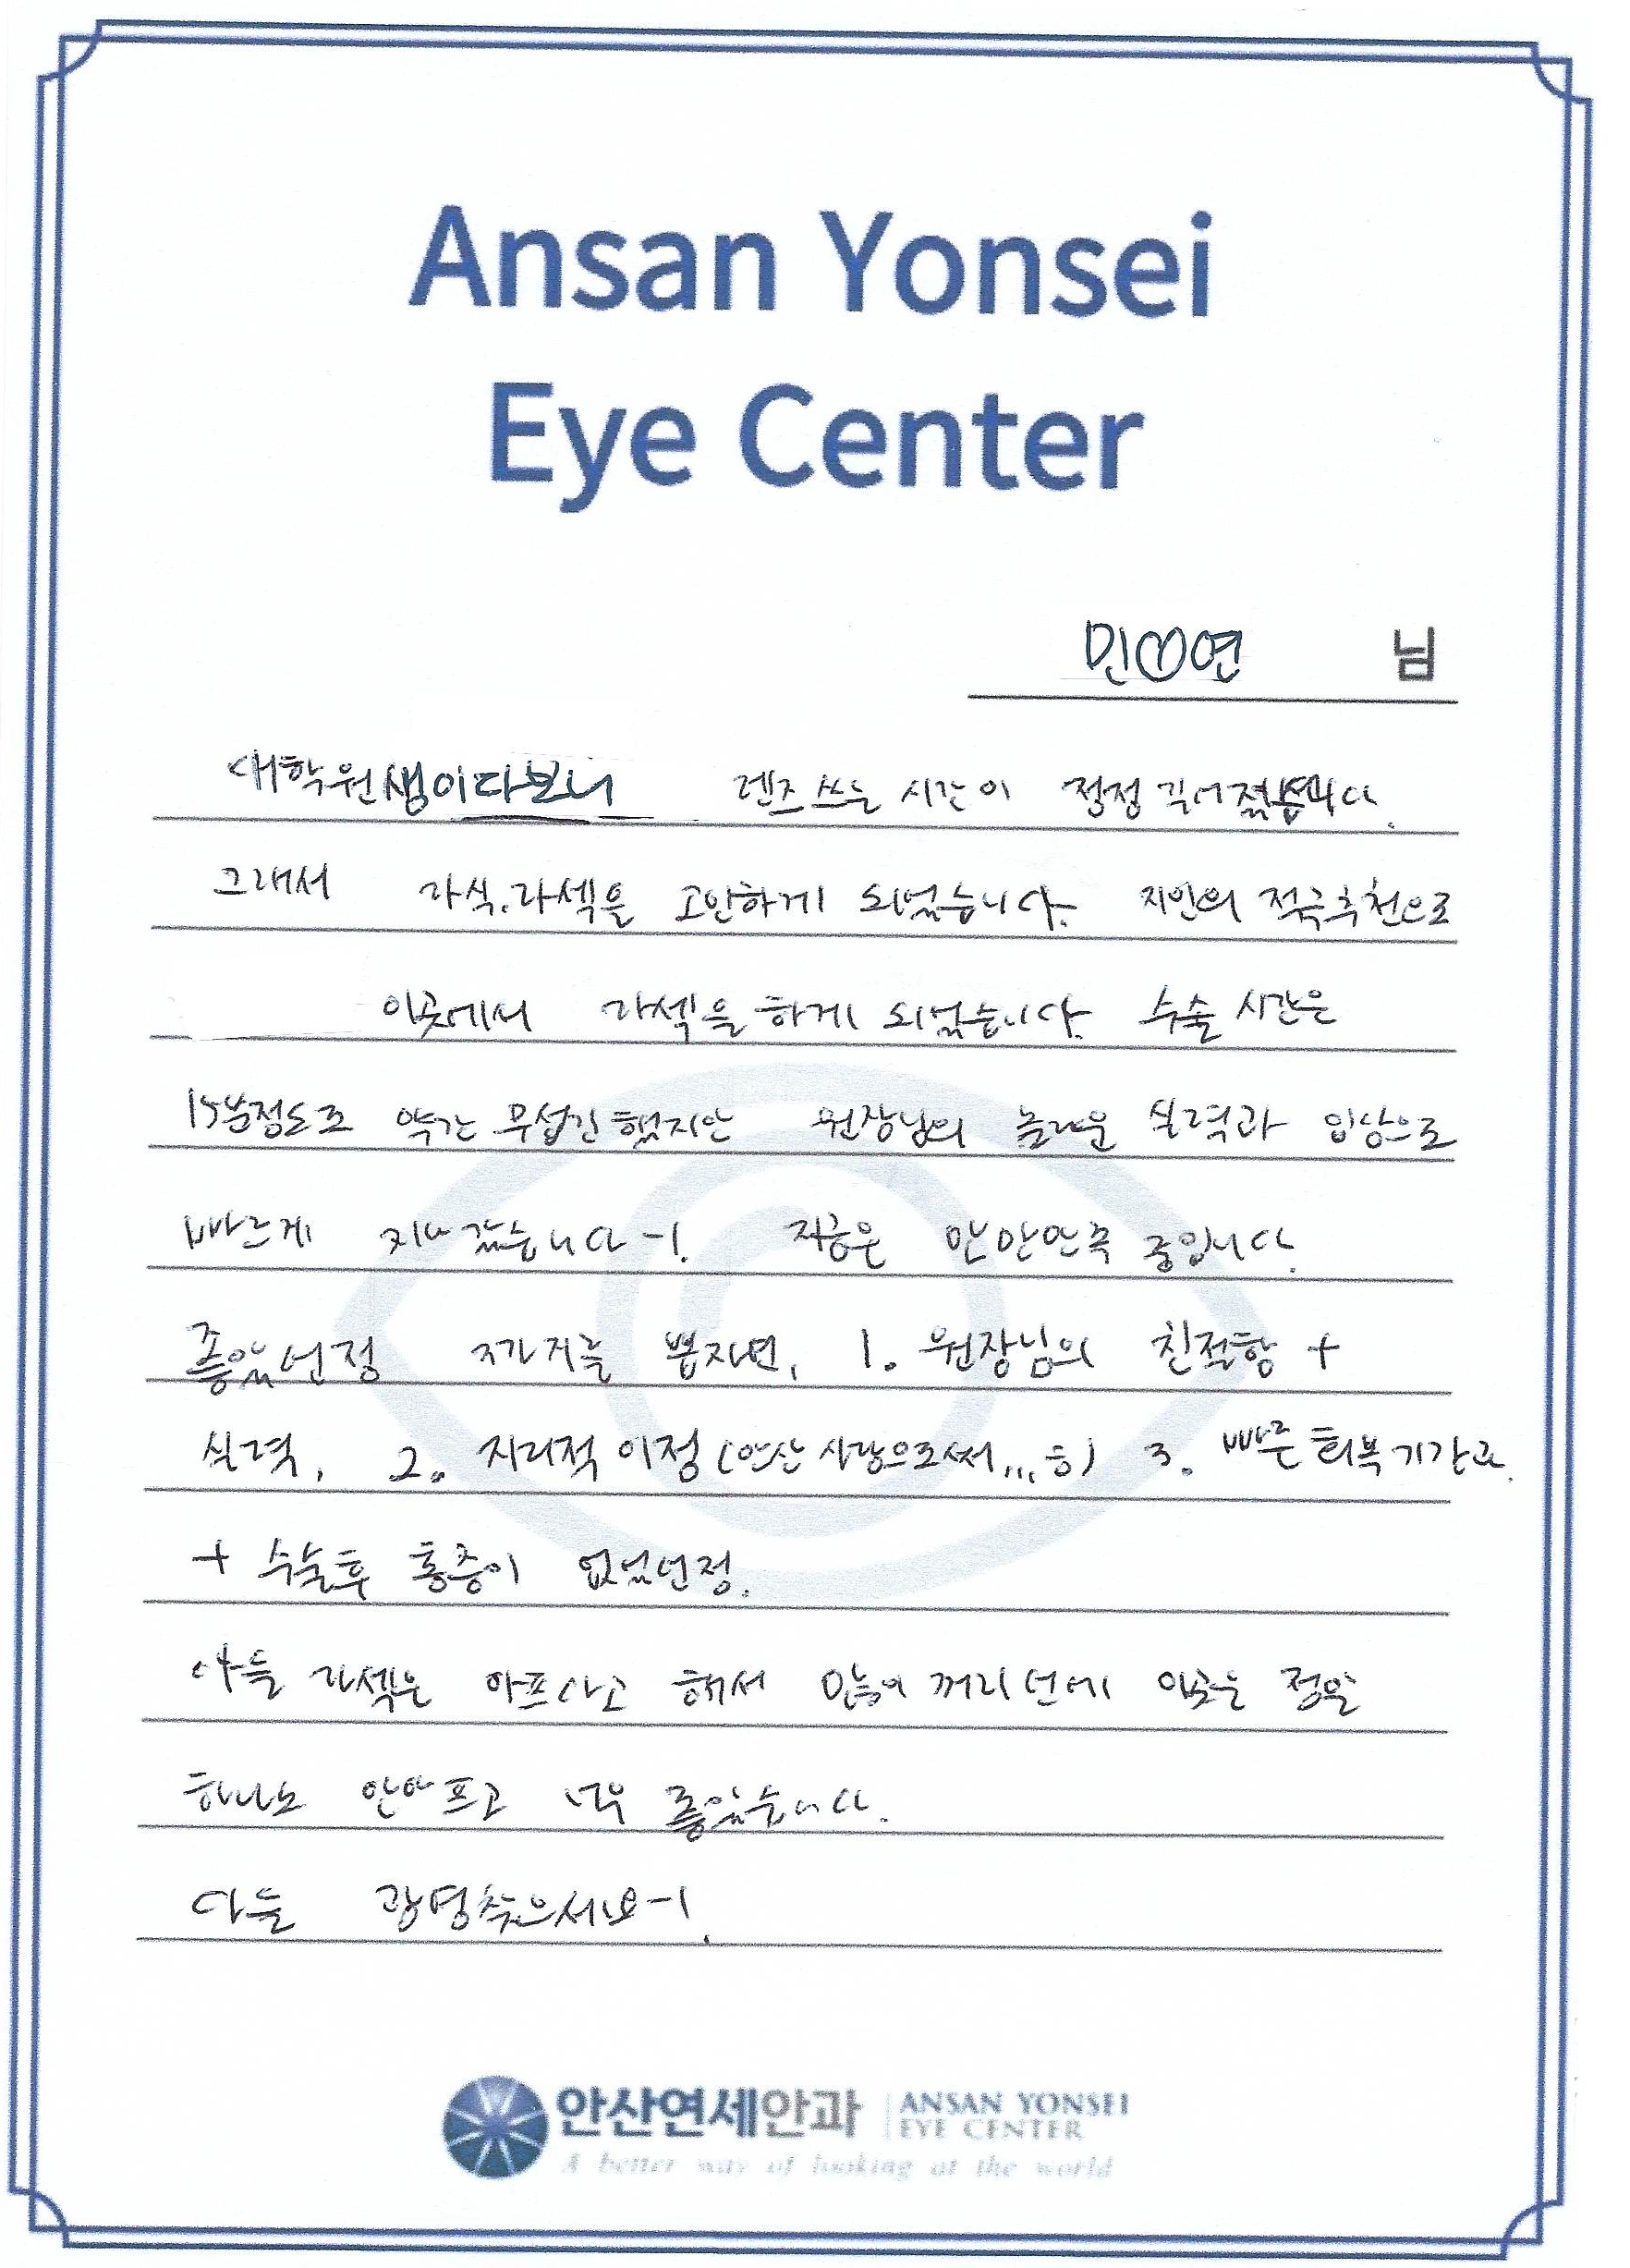 Ansan Yonsei
Eye Center
민♡연 님
대학원생이다보니 렌즈 쓰는 시간이 점점 적어졌습니다.
그래서 라식.라섹을 고민하게 되었습니다. 지인의 적극추천으로
이곳에서 라섹을 하게 되었습니다. 수술 시간은
15분정도로 약간 무섭긴 했지만 원장님의 놀라운 실력과 입담으로
빠르게 지나갔습니다-!. 지금은 만만만족 중입니다.
좋았던점 3가지를 뽑자면, 1. 원장님의 친절함 +
실력, 2. 지리적 이점 (안산 사람으로써... ㅎ) 3. 빠른 회복기간과.
+ 수술후 통증이 없었던점.
다들 라섹은 아프다고 해서 많이 꺼리던데 이곳은 정말
하나도 안아프고 너무 좋았습니다.
다들 광명찾으세요-!.
안산연세안과 ANSAN YONSEI
EYE CENTER
A better way of looking at the world